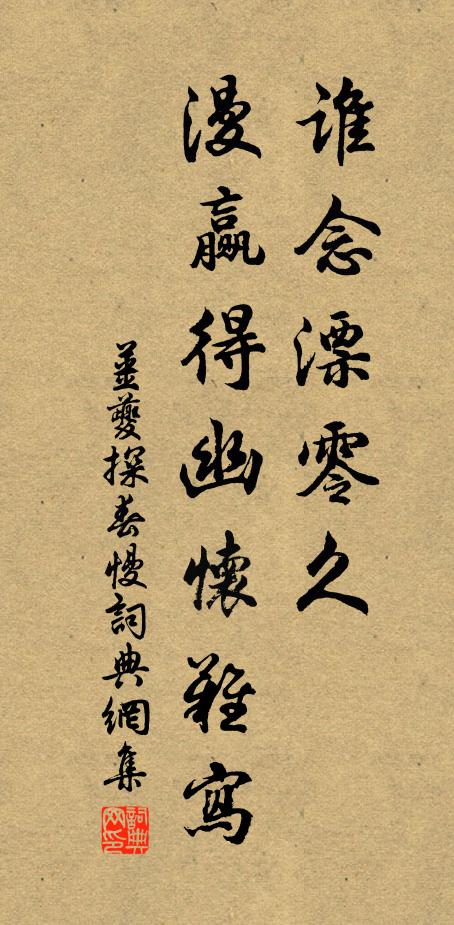 谁念漂零久
漫赢得幽懷難寫
姜夔探春慢詞典網集
詞典网印